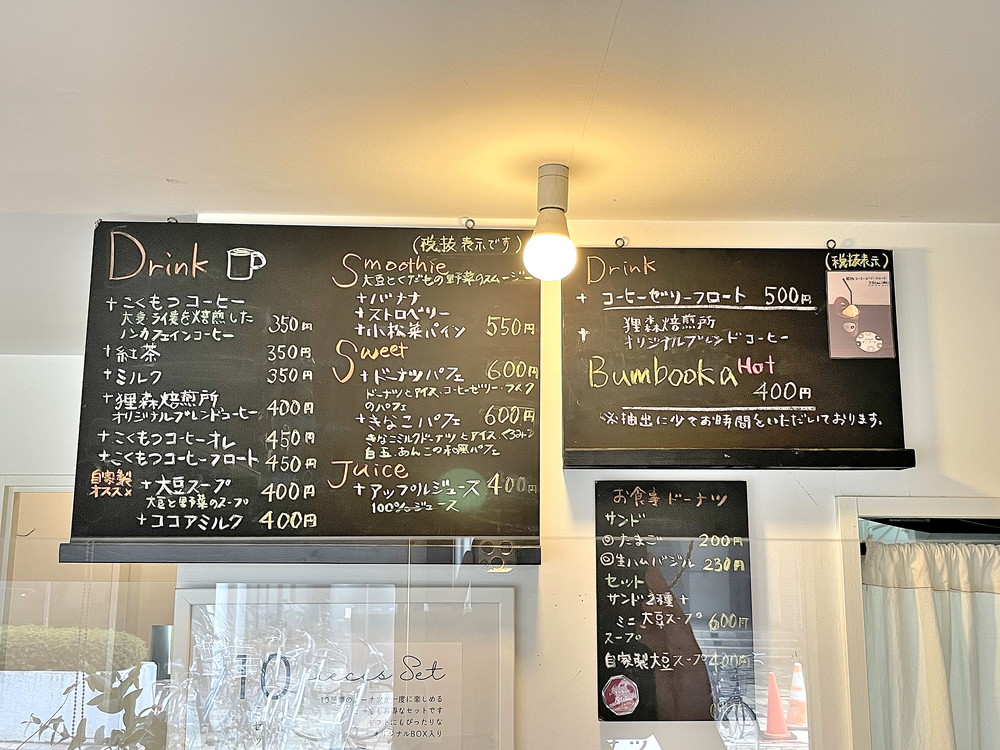 Drink
+こくもつコーヒー
大麦ライ麦を焙煎した
ノンカフェインコーヒー
350円
+紅茶 350円
+ミルク 350円
+狸森焙煎所
オリジナルブレンドコーヒー 400円
+こくもつコーヒーオレ 450円
+こくもつコーヒーフロート 450円
自家製
オススメ
+大豆スープ 400円
大豆と野菜のスープ
+ココアミルク 400円
(税抜表示です)
Smoothie
大豆とくだもの野菜のスムージー
+バナナ
+ストロベリー
+小松菜パイン 550円
Sweet
+ドーナツパフェ 600円
ドーナツとアイス、コーヒーゼリー・フレーク
のパフェ
+きなこパフェ 600円
きなこミルクドーナツとアイス
白玉、あんこの和風パフェ
Juice
+アップルジュース 400円
100%ジュース
(税抜表示)
Drink
+ コーヒーゼリーフロート 500円
+ 狸森焙煎所
オリジナルブレンドコーヒー
Bumbooka Hot
400円
※抽出に少々お時間をいただいております。
お食事ドーナツ
サンド
◎たまご 200円
◎生ハムバジル 230円
セット
サンド2種+
ミニ大豆スープ 600円
スープ
自家製大豆スープ 400円
10 pieces Set
ーナツが一度に楽しめる
お得なセットです
フトにもぴったりな
ナルBOX入り